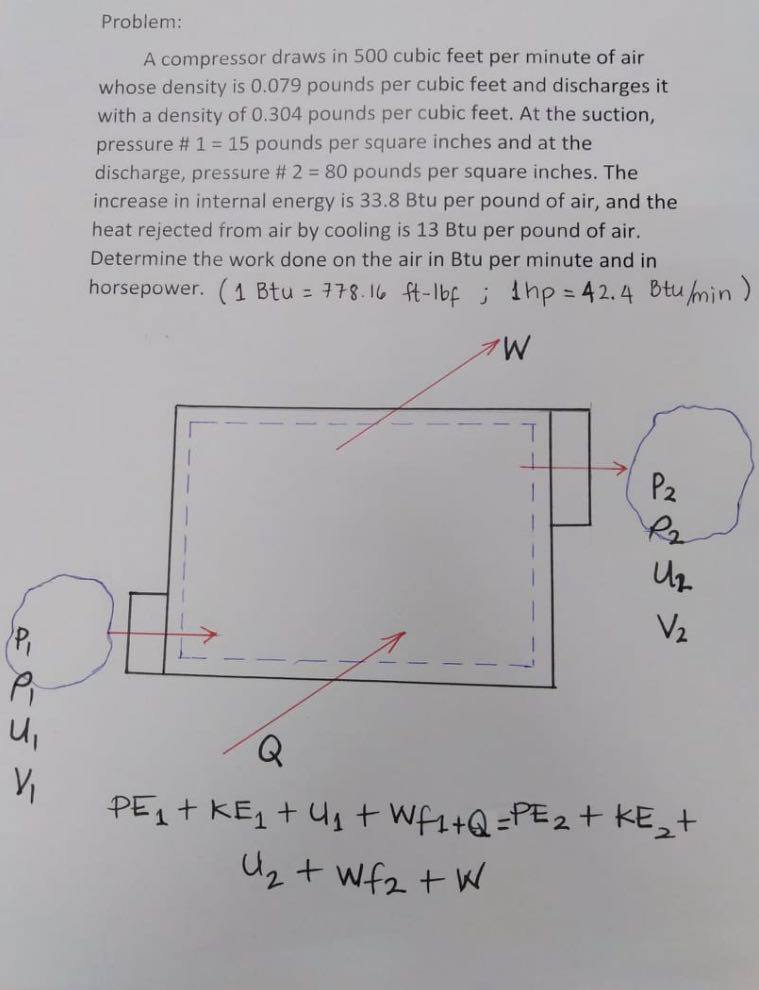 Problem:
A compressor draws in 500 cubic feet per minute of air
whose density is 0.079 pounds per cubic feet and discharges it
with a density of 0.304 pounds per cubic feet. At the suction,
pressure # 1 = 15 pounds per square inches and at the
discharge, pressure # 2 = 80 pounds per square inches. The
increase in internal energy is 33.8 Btu per pound of air, and the
heat rejected from air by cooling is 13 Btu per pound of air.
Determine the work done on the air in Btu per minute and in
horsepower. (1 Btu = 778.16 ft-lbf ; 1hp = 42.4 Btu/min)
W
P2
ρ2
U2
V2
P1
ρ1
U1
V1
Q
PE1 + KE1 + U1 + Wf1+Q = PE2 + KE2 +
U2 + Wf2 + W